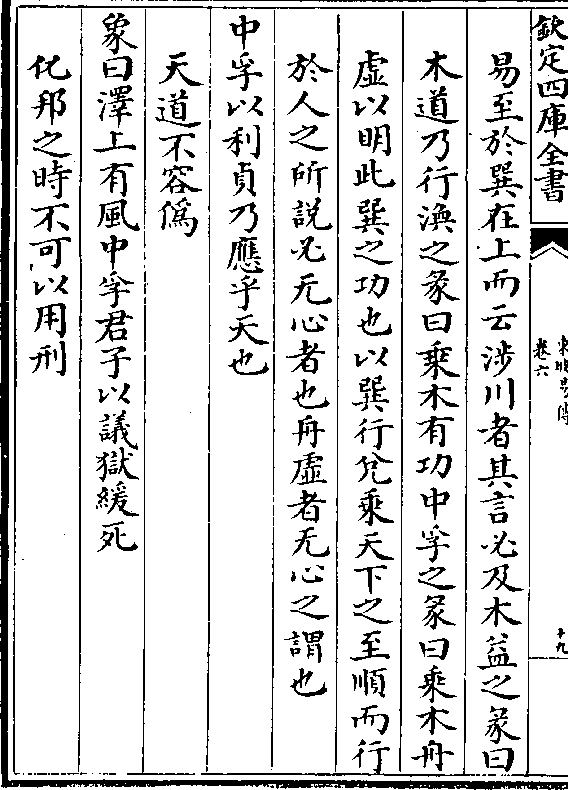 欽定四庫全書
卷六
易至於巽在上而云涉川者其言必及木益之彖曰
木道乃行渙之彖曰乘木有功中孚之彖曰乘木舟
虛以明此巽之功也以巽行兌乘天下之至順而行
於人之所説必无心者也舟虛者无心之謂也
中孚以利貞乃應乎天也
天道不容僞
象曰澤上有風中孚君子以議獄緩死
化邦之時不可以用刑